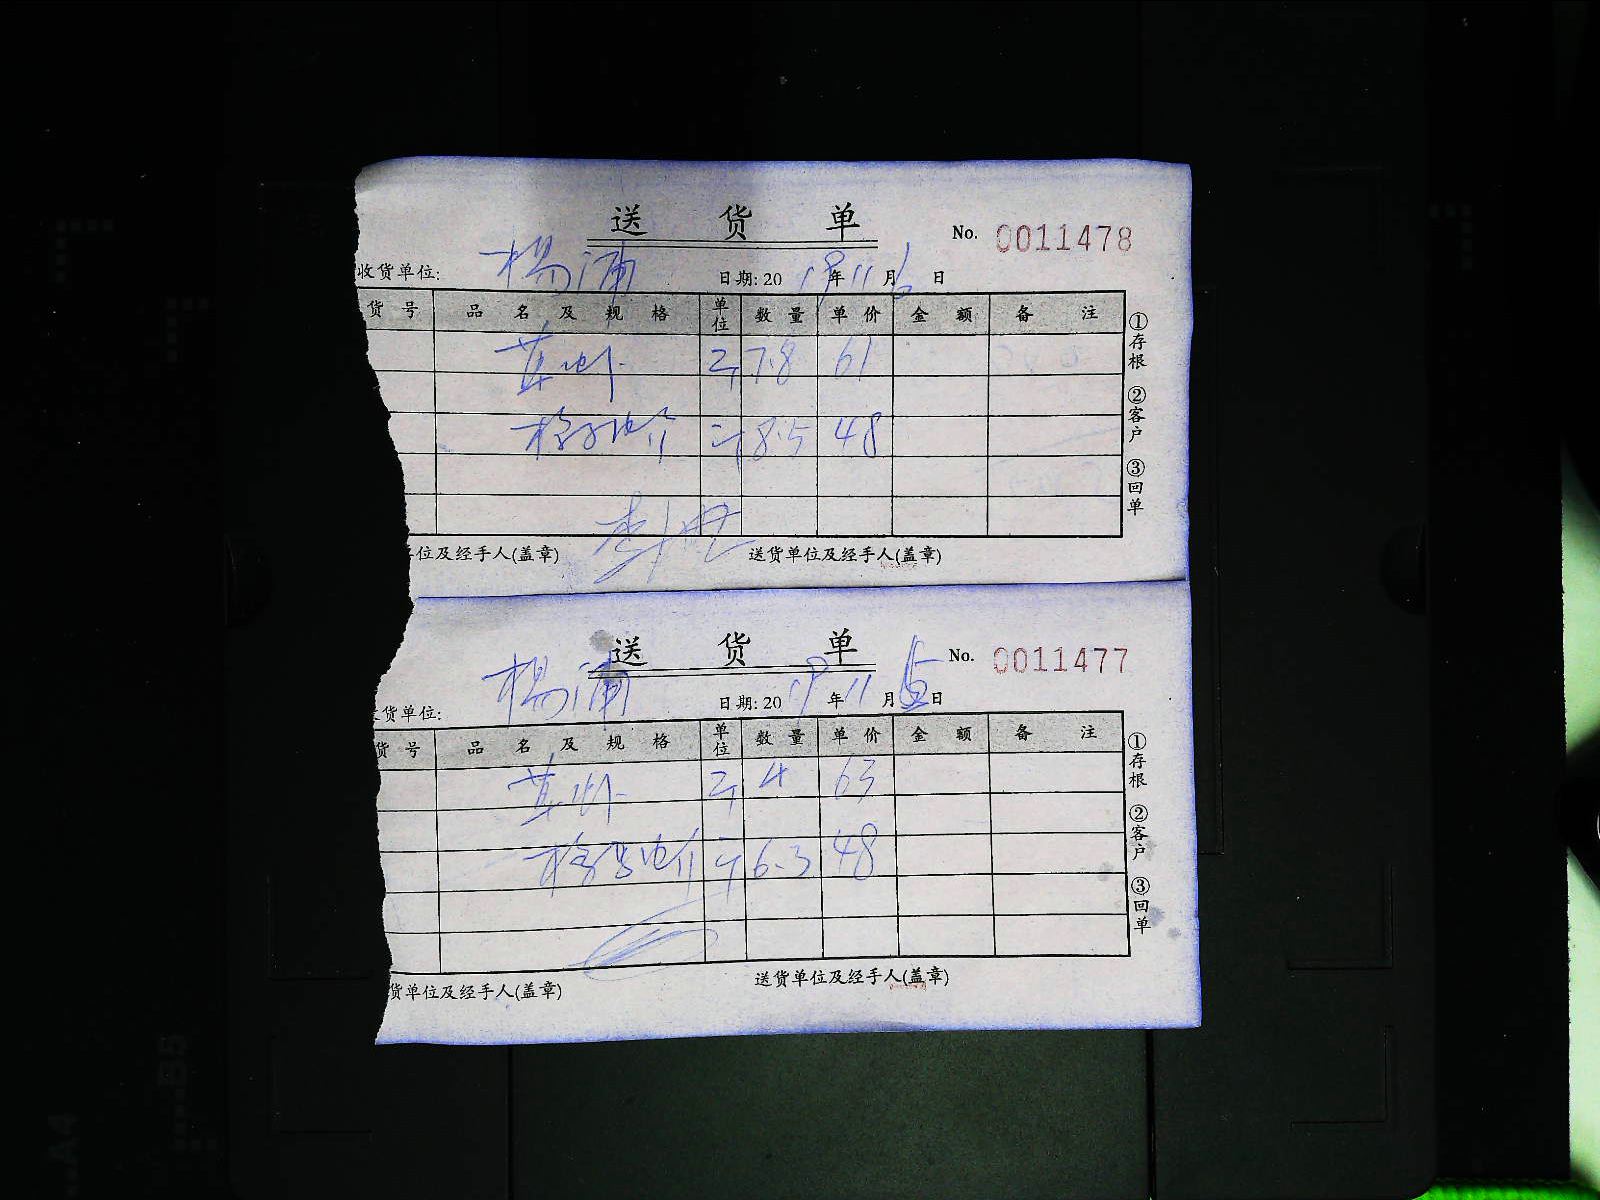 送 货 单
No. 0011478
收货单位: 杨浦 日期: 2019年11月6日
货 号 品 名 及 规 格 单位 数 量 单 价 金 额 备 注
草虾 斤 7.8 61
斤 8.5 48
单位及经手人(盖章) 送货单位及经手人(盖章)
①存根 ②客户 ③回单
送 货 单
No. 0011477
货单位: 杨浦 日期: 2019年11月5日
货 号 品 名 及 规 格 单位 数 量 单 价 金 额 备 注
草虾 斤 4 63
斤 6.3 48
货单位及经手人(盖章) 送货单位及经手人(盖章)
①存根 ②客户 ③回单
B5
A4